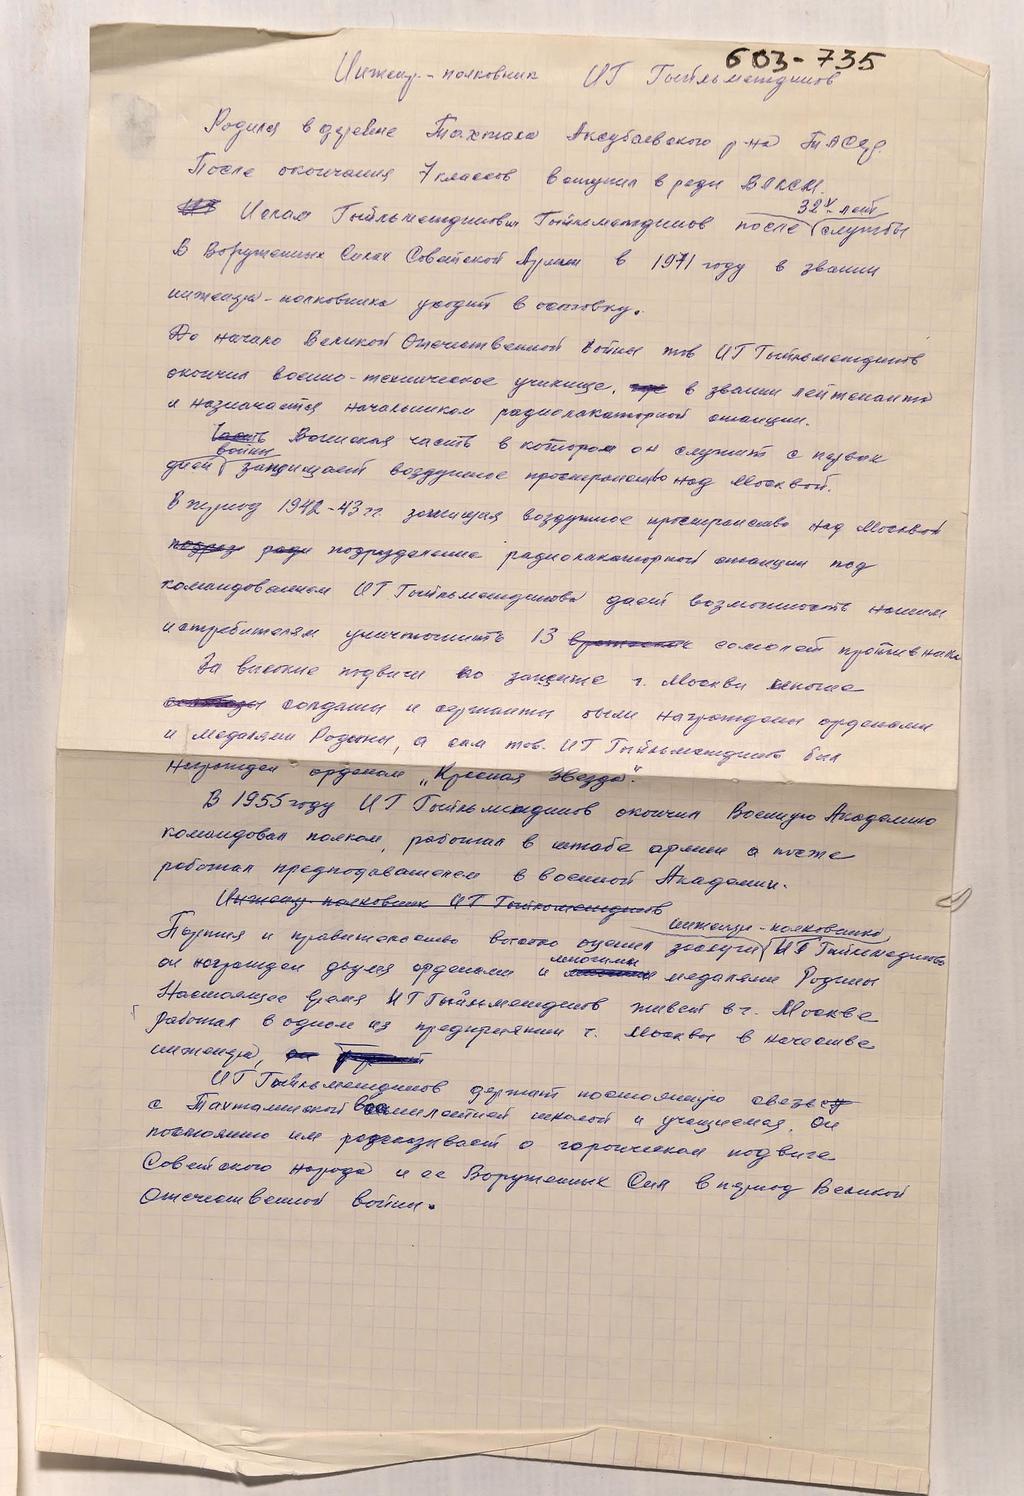 603-735
Инженер-полковник ИГ Гыйльметдинов
Родился в деревне Тахтала Аксубаевского р-на ТАССР.
После окончания 7 классов вступил в ряди ВЛКСМ.
32х лет
Ислам Гыйльметдинович Гыйльметдинов после службы
в Воруженных Силах Советской Армии в 1971 году в звании
инженера-полковника уходит в отставку.
До начало Великой Отечественной войны тов ИГ Гыйльметдинов
окончил военно-техническое училище, в звании лейтенанта
и назначается начальником радиолакаторной станции.
Часть Воинская часть в котором он служит с первых
войны
дней защищает воздушное пространство над Москвой.
В период 1942-43 гг. защищая воздушное пространство над Москвой
подразделение радиолакаторной станции под
командованием ИГ Гыйльметдинова дает возможность нашим
истребителям уничтожить 13 самолет противника
За высокие подвиги по защите г. Москвы многие
солдаты и сержанты были награждены орденами
и медалями Родины, а сам тов. ИГ Гыйльметдинов был
награжден орденом „Красная Звезда".
В 1955 году ИГ Гыйльметдинов окончил Военную Академию
командовал полком, работал в штабе армии а позже
работал преподавателем в военной Академии.
Инженер-полковник ИГ Гыйльметдинов
инженера-полковника
Партия и правительство высоко оценил заслуги ИГ Гыйльметдинова
многими
он награжден двумя орденами и медалями Родины
Настоящее время ИГ Гыйльметдинов живет в г. Москве
Работал в одном из предприятии г. Москвы в качестве
инженера,
ИГ Гыйльметдинов держит постоянную связь
с Тахталинской восмилетней школой и учащиемся. Он
постоянно им расказивает о героическом подвиге
Советского народа и ее Воруженных Сил в период Великой
Отечественной войны.